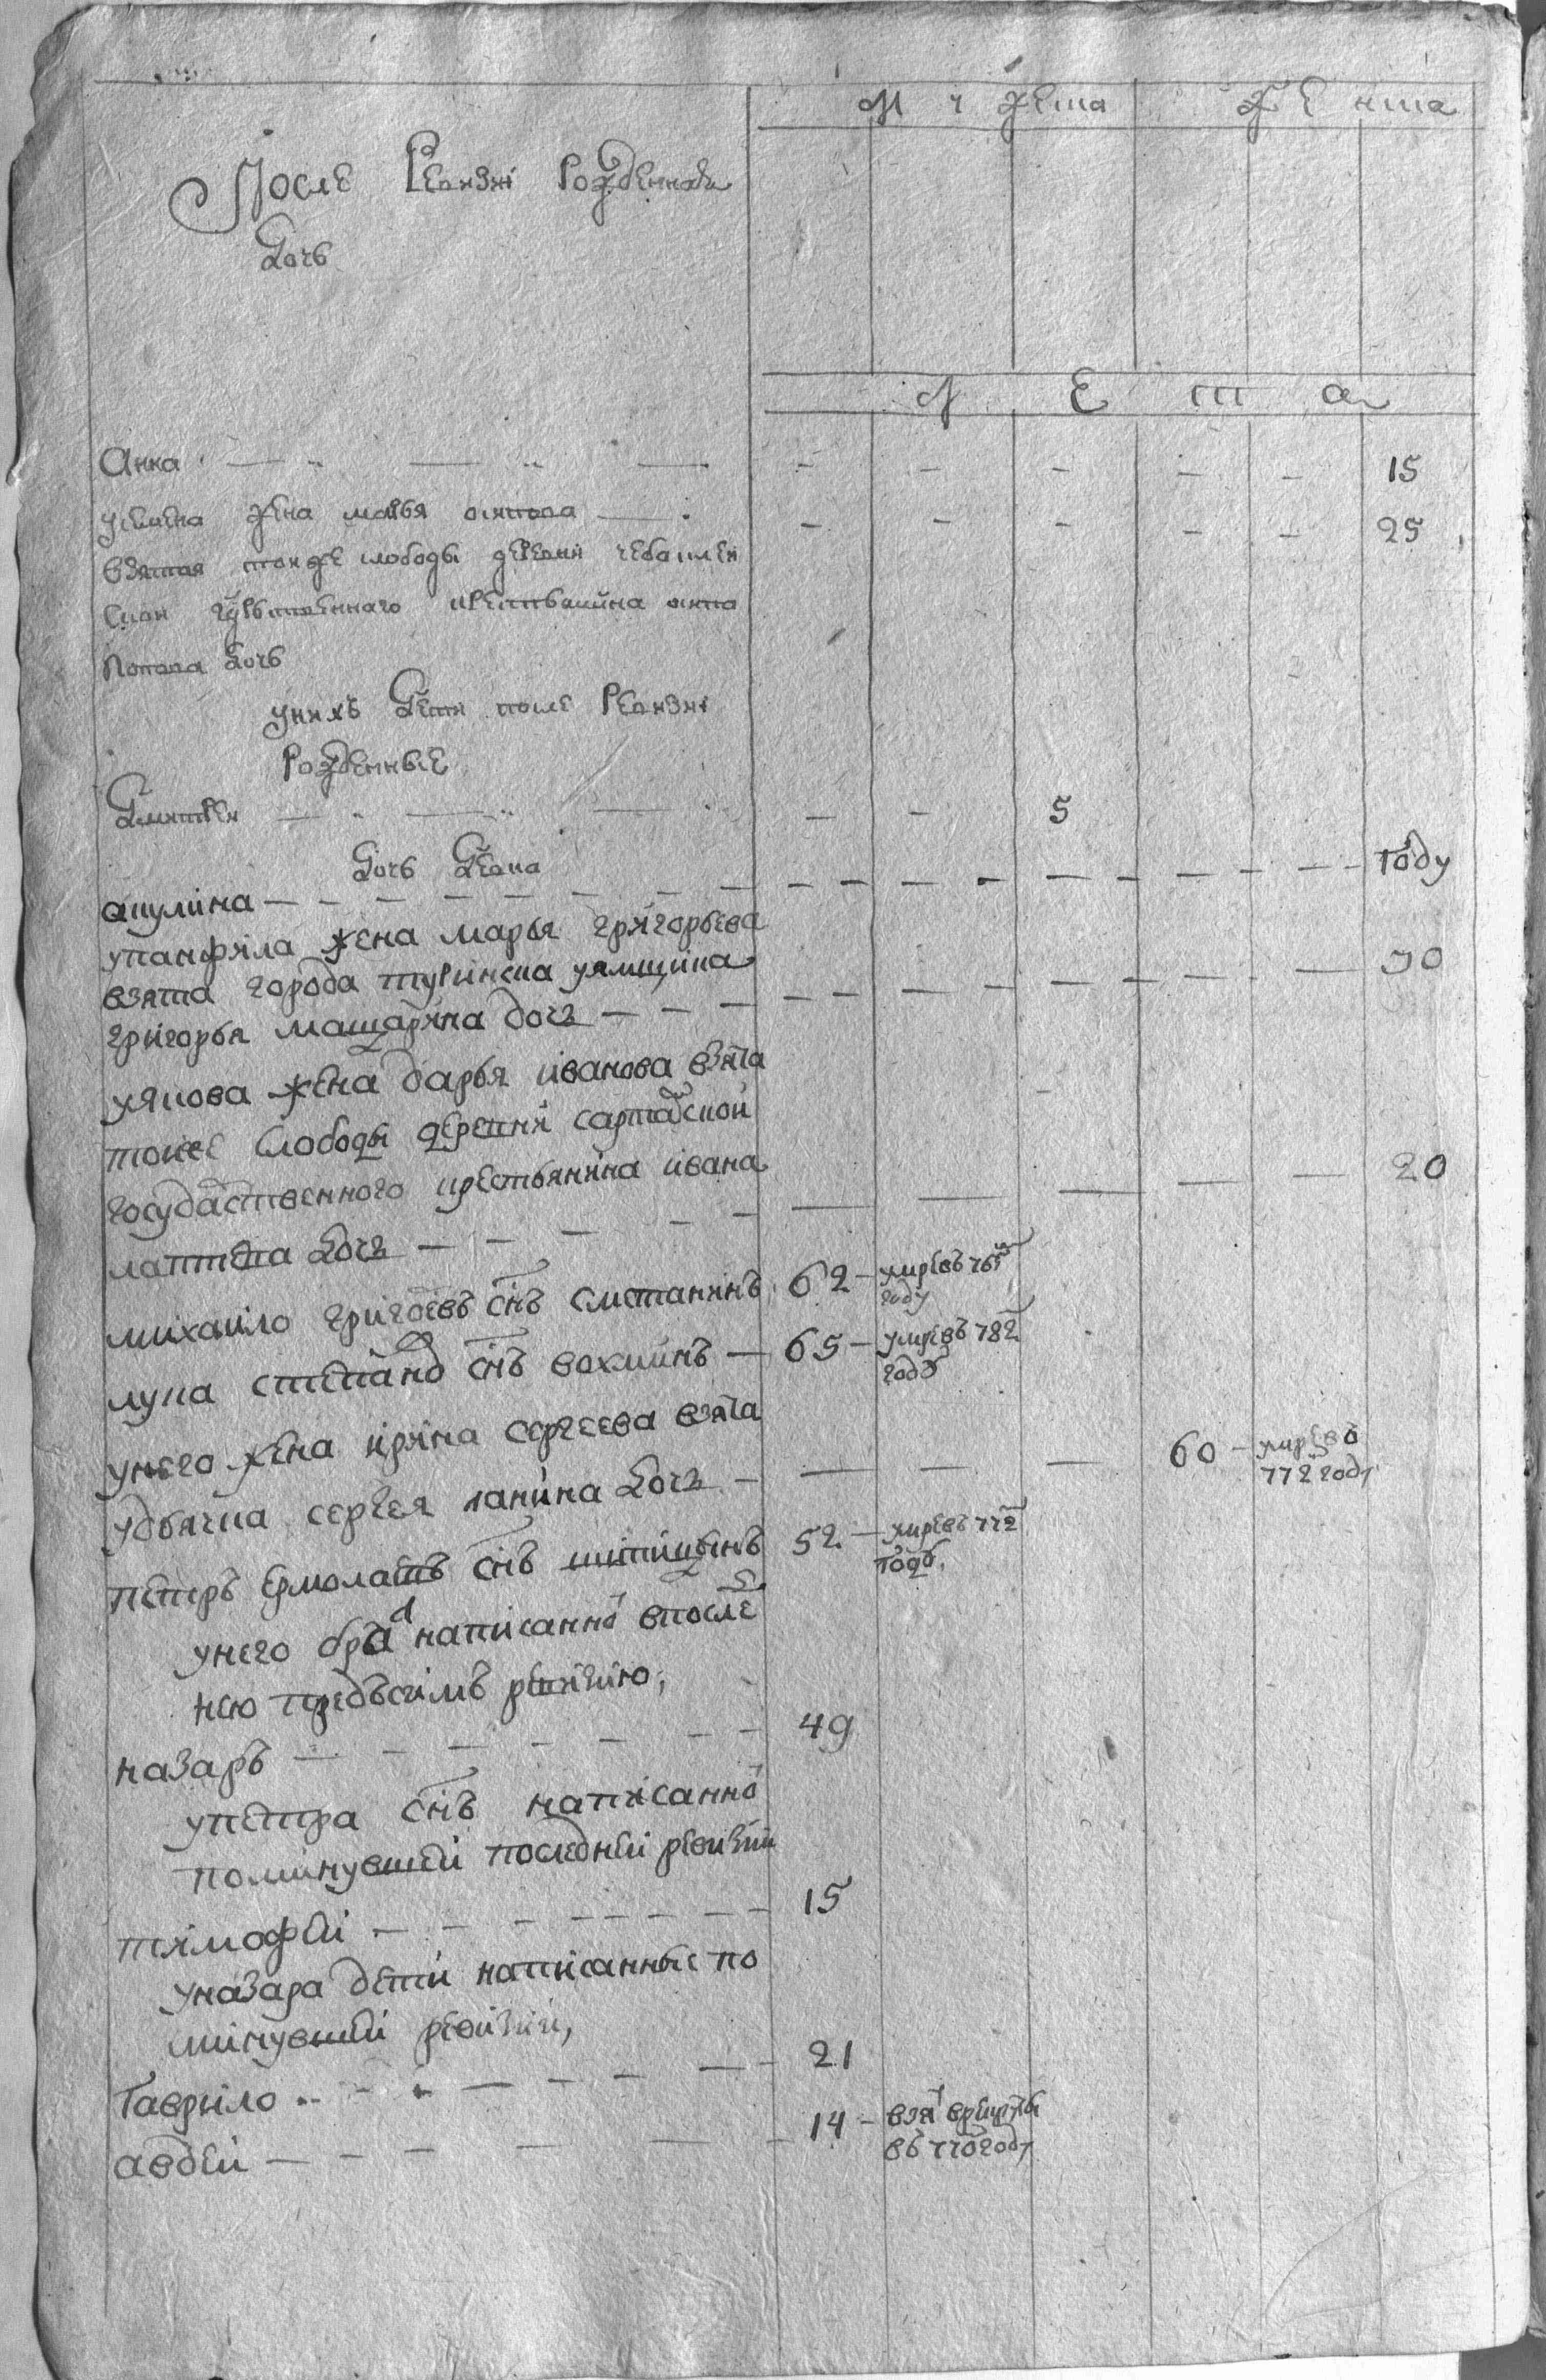 Мужеска Женска
После Ревизиі Рожденная
Дочь
Л Е Т А
Анна — — — 15
у семена жена марья осипова — 25
взятая тои же слободы деревни чебашев
скои крестьянина осипа
потапа дочь
у нихъ Дети после Ревизиі
Рожденные
Дмитреи — — — 5
Дочь Девка
акулина — — — году
у панфила жена марья григорьева
взята города туринска у ямщика — 30
григорья дочь — — —
у якова жена дарья иванова взята
тоеже слободы деревни
государственного крестьянина ивана — 20
лаптева дочь — — —
михаило григоревъ снъ сметанинъ 62 — умре въ 765
году
лука степано снъ вохминъ — 65 — умре въ 782
году
у него жена ирина сергеева взята
у дьячка сергея дочь — 60 — умре в
772 году
петръ ермолаевъ снъ шипицынъ 52 — умре въ 772
году
у него бра написанно в после
нею предъ симъ ревизию,
назаръ — — — 49
у петра снъ написанно
по минувшей последней ревизии
тимофеи — — — 15
у назара дети написанные по
минувшей ревизии,
Гаврило — — — 21
авдей — — — 14 — взя в рекруты
въ 770 году